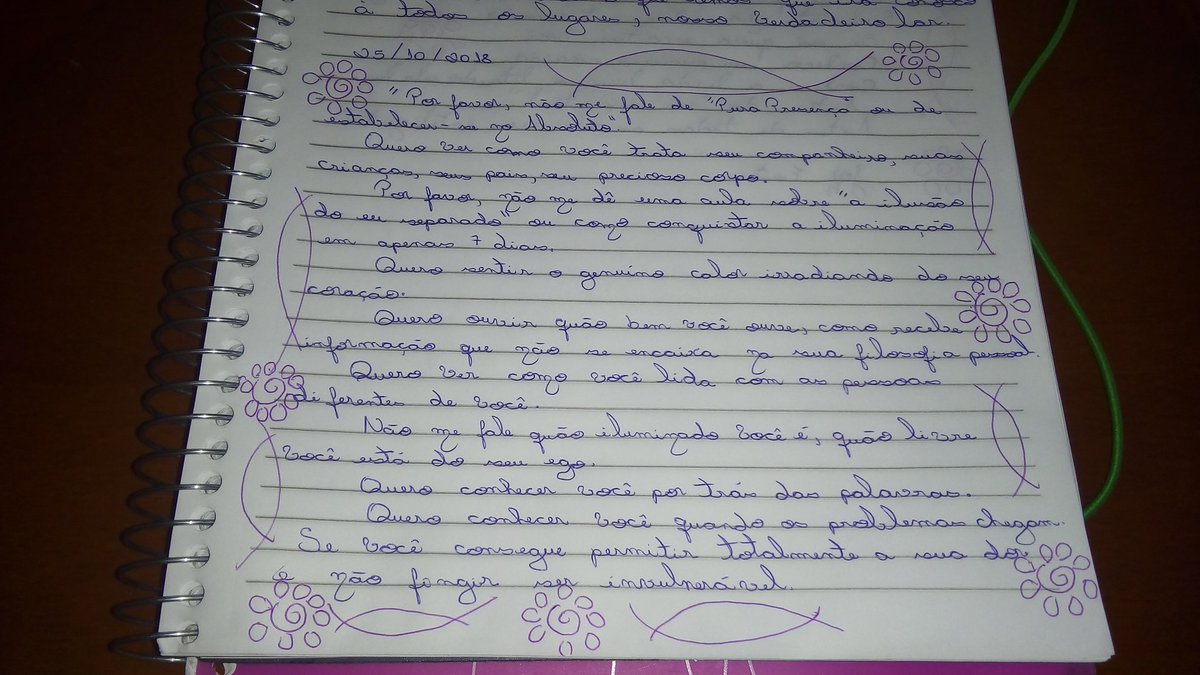 à todos os lugares, nosso verdadeiro lar.
25/10/2018
"Por favor, não me fale de "Pura Presença ou de
estabelecer-se no Absoluto".
Quero ver como você trata seu companheiro, suas
crianças, seus pais, seu precioso corpo.
Por favor, não me dê uma aula sobre "a ilusão
do eu separado" ou como conquistar a iluminação
em apenas 7 dias.
Quero sentir o genuíno calor irradiando do seu
coração.
Quero ouvir quão bem você ouve, como recebe
informação que não se encaixa na sua filosofia pessoal.
Quero ver como você lida com as pessoas
diferentes de você.
Não me fale quão iluminado você é, quão livre
você está do seu ego.
Quero conhecer você por trás das palavras.
Quero conhecer você quando os problemas chegam.
Se você consegue permitir totalmente a sua dor
e não fingir ser invulnerável.